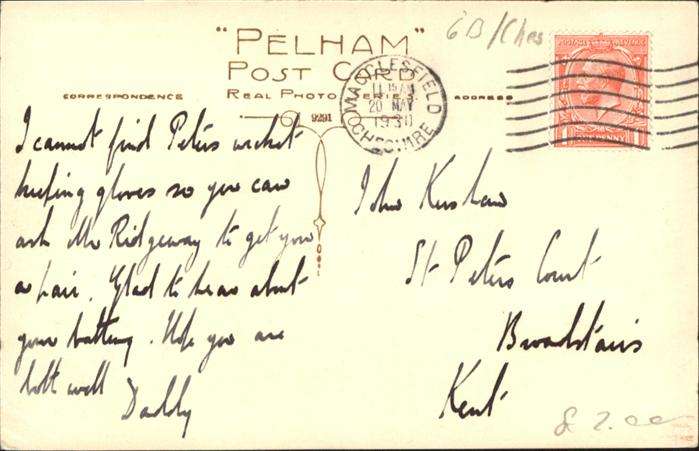 6B/Ches
"PELHAM"
POST CARD
CORRESPONDENCE
REAL PHOTO SERIES
ADDRESS
9291
MACCLESFIELD
20 MAY
1930
CHESHIRE
I cannot find Peters wicket
keeping gloves so you can
ask Mr Ridgeway to get you
a pair. Glad to hear about
your batting. Hope you are
both well
Daddy
John Kershaw
St Peters Court
Broadstairs
Kent
2.00